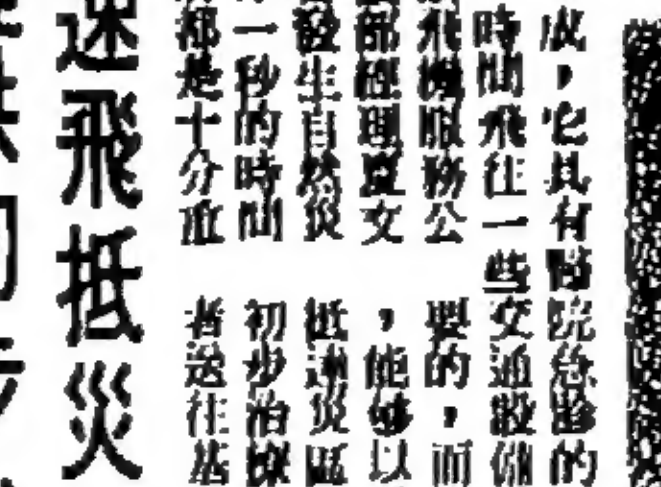 成，它具有醫院急診的
時間飛往一些交通設備
飛機服務公
部經理夏文
發生自然災
一秒的時間
都是十分重
要的，而
，能夠以
抵達災區
初步治療
者送往基
速飛抵災